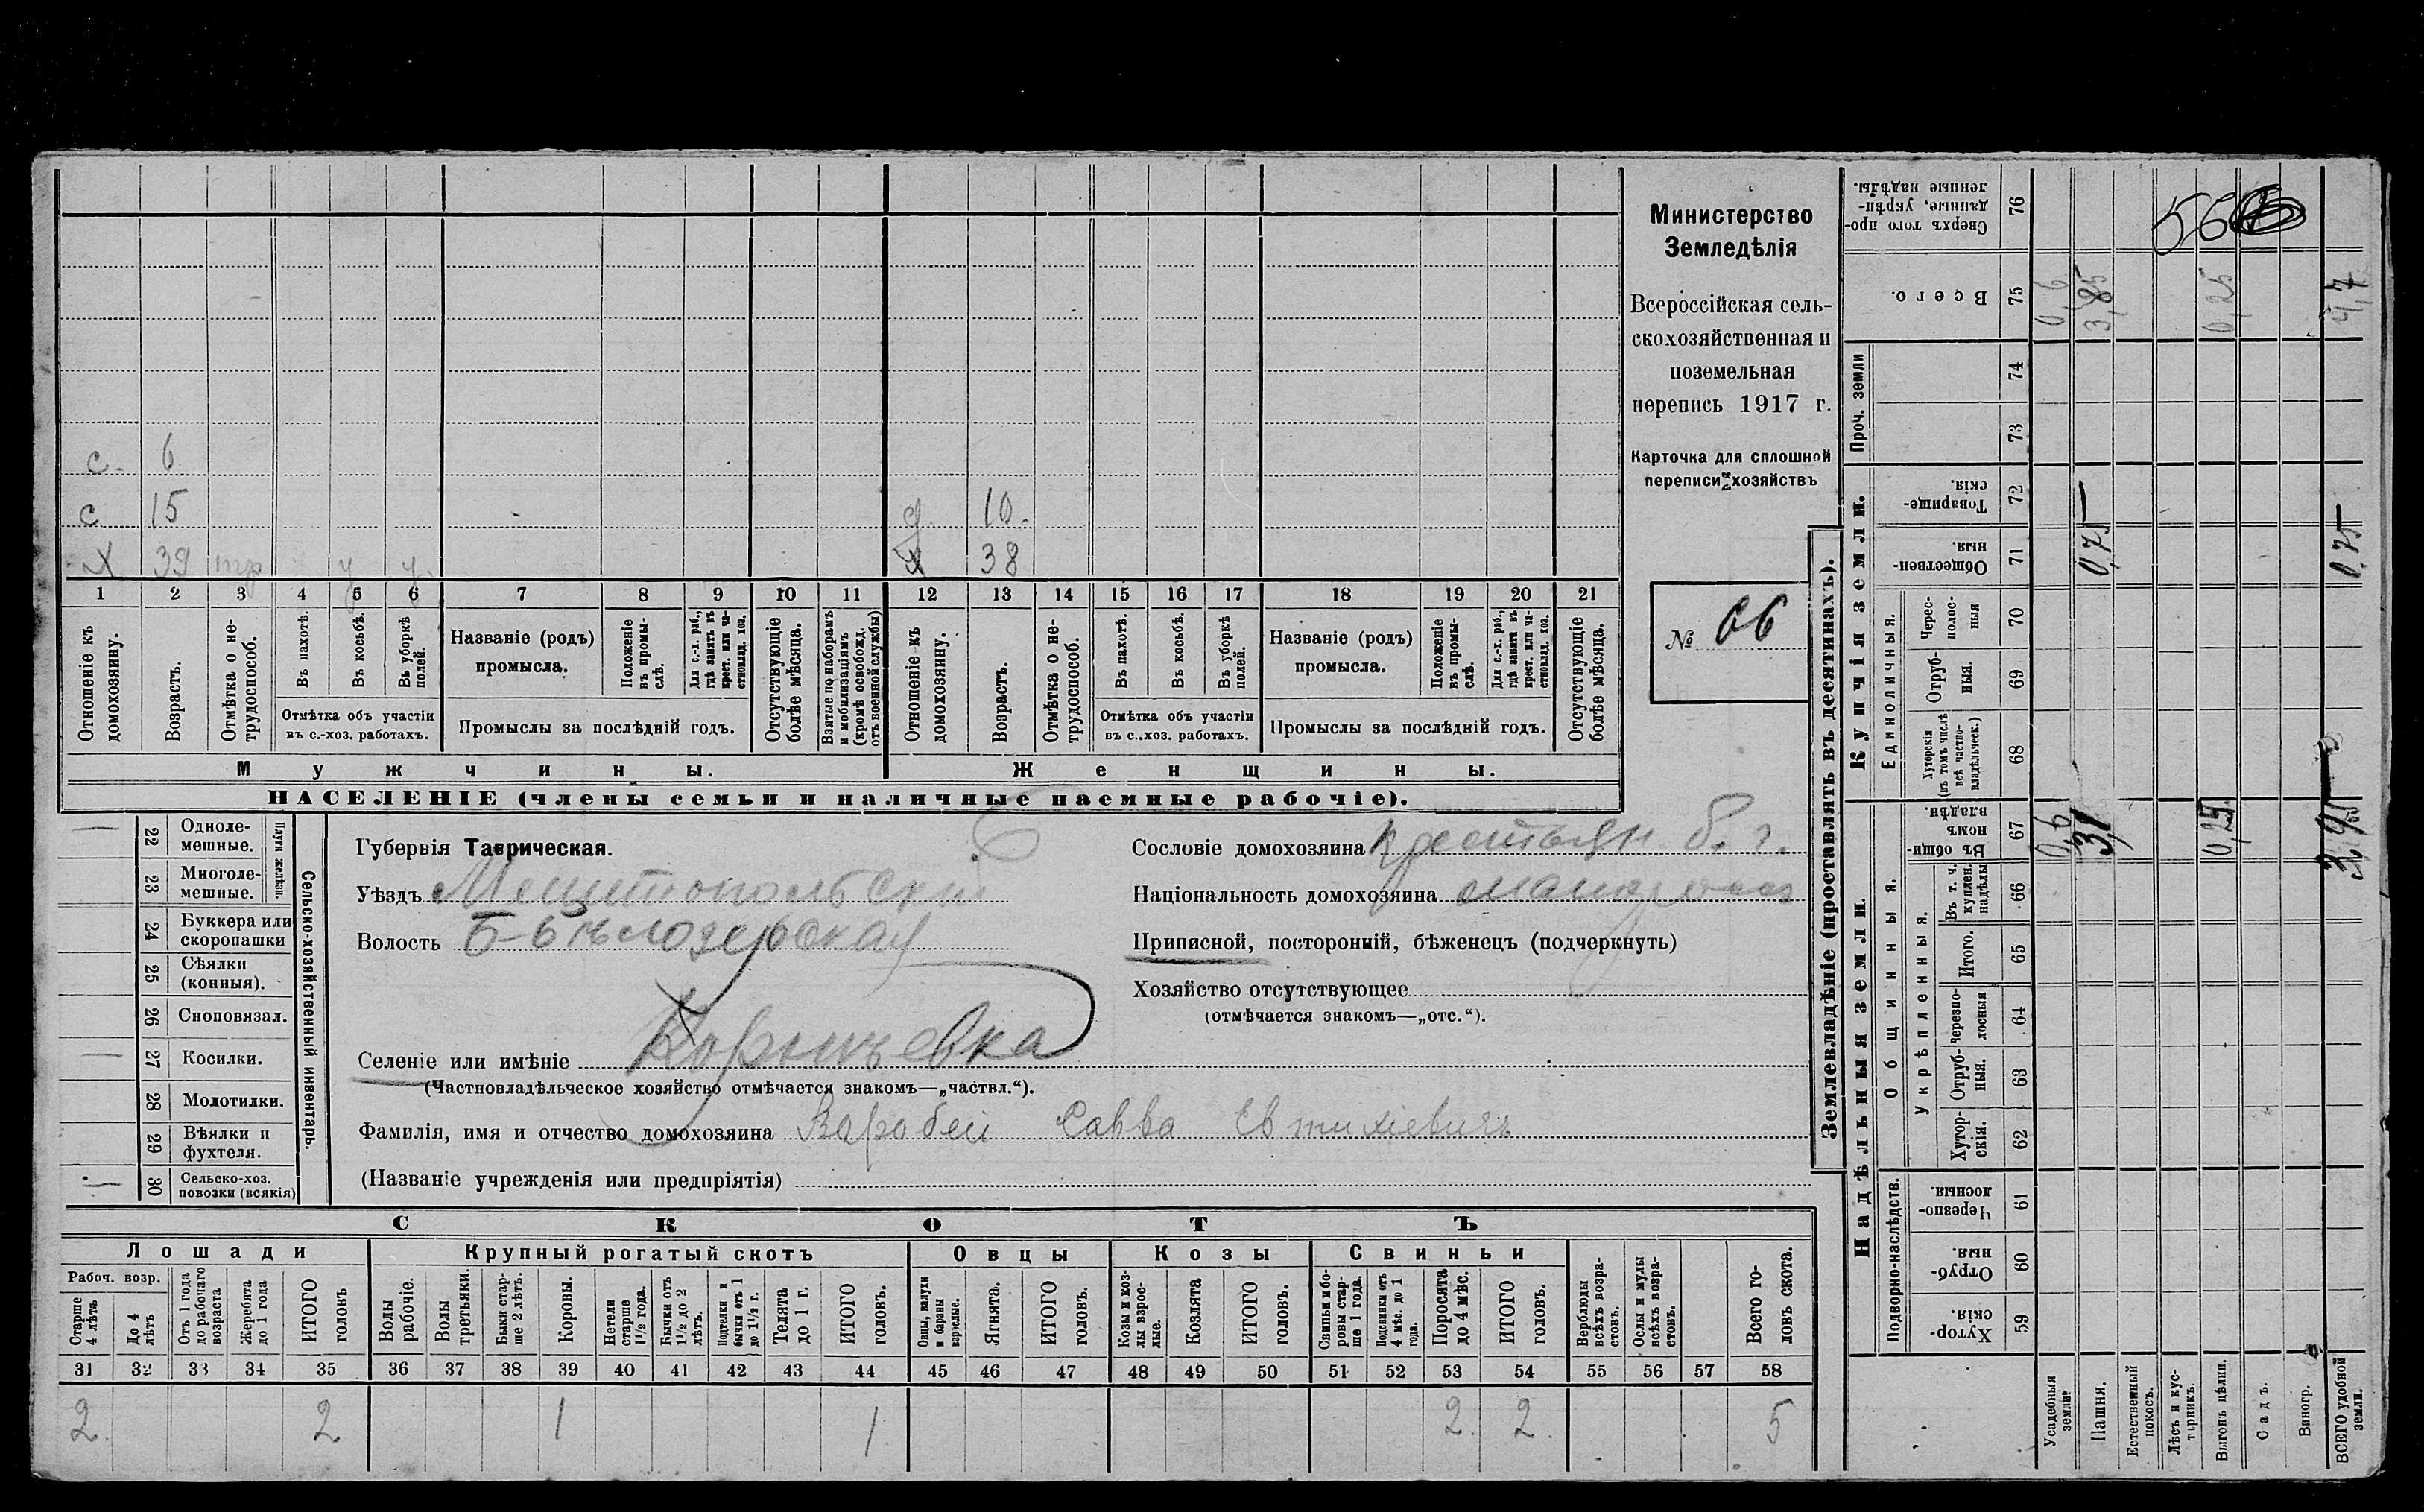 с. 6
с 15 д. 10.
х 39 нтр у у. х 38
1 2 3 4 5 6 7 8 9 10 11 12 13 14 15 16 17 18 19 20 21
Отношеніе къ домохозяину.
Возрастъ.
Отмѣтка о не-трудоспособ.
Въ пахотѣ.
Въ косьбѣ.
Въ уборкѣ полей.
Отмѣтка объ участіи
въ с.-хоз. работахъ.
Названіе (родъ)
промысла.
Положеніе въ промы-слѣ.
Для с.-х. раб., гдѣ занятъ въ крест. или ча-стновлад. хоз.
Промыслы за послѣдній годъ.
Отсутствующіе болѣе мѣсяца.
Взятые по наборамъ и мобилизаціямъ (кромѣ освобожд. отъ военной службы)
Отношеніе къ домохозяину.
Возрастъ.
Отмѣтка о не-трудоспособ.
Въ пахотѣ.
Въ косьбѣ.
Въ уборкѣ полей.
Отмѣтка объ участіи
въ с..хоз. работахъ.
Названіе (родъ)
промысла.
Положеніе въ промы-слѣ.
Для с.-х. раб., гдѣ занята въ крест. или ча-стновлад. хоз.
Промыслы за послѣдній годъ.
Отсутствующіе болѣе мѣсяца.
Мужчины. Женщины.
НАСЕЛЕНІЕ (члены семьи и наличные наемные рабочіе).
Министерство
Земледѣлія
Всероссійская сель-
скохозяйственная и
поземельная
перепись 1917 г.
Карточка для сплошной
переписи хозяйствъ
№ 66
Сельско-хозяйственный инвентарь.
Плуги желѣзн.
— 22 Одноле-мешные.
23 Многоле-мешные.
24 Буккера или скоропашки
25 Сѣялки (конныя).
26 Сноповязал.
— 27 Косилки.
28 Молотилки.
29 Вѣялки и фухтеля.
30 Сельско-хоз. повозки (всякія)
Губернія Таврическая.
Уѣздъ Мелитопольскій
Волость Б-Бѣлозерская
Селеніе или имѣніе
(Частновладѣльческое хозяйство отмѣчается знакомъ—„частвл.“).
Фамилія, имя и отчество домохозяина Воробей Савва Евтихіевичъ
(Названіе учрежденія или предпріятія)
Сословіе домохозяина крестьян б. г.
Національность домохозяина малоросс
Приписной, посторонній, бѣженецъ (подчеркнуть)
Хозяйство отсутствующее
(отмѣчается знакомъ—„отс.“).
СКОТЪ
Лошади Крупный рогатый скотъ Овцы Козы Свиньи
Рабоч. возр.
Старше 4 лѣтъ
До 4 лѣтъ
Отъ 1 года до рабочаго возраста
Жеребята до 1 года
ИТОГО головъ
Волы рабочіе.
Волы третьяки.
Быки стар-ше 2 лѣтъ.
Коровы.
Нетели старше 1½ года.
Бычки отъ 1½ до 2 лѣтъ.
Подтелки и бычки отъ 1 до 1½ г.
Телята до 1 г.
ИТОГО головъ.
Овцы, валухи и бараны взрослые.
Ягнята.
ИТОГО головъ.
Козы и коз-лы взрос-лые.
Козлята
ИТОГО головъ.
Свиньи и бо-ровы стар-ше 1 года.
Подсвинки отъ 4 мѣс. до 1 года.
Поросята до 4 мѣс.
ИТОГО головъ.
Верблюды всѣхъ возра-стовъ.
Ослы и мулы всѣхъ возра-стовъ.
Всего го-ловъ скота.
31 32 33 34 35 36 37 38 39 40 41 42 43 44 45 46 47 48 49 50 51 52 53 54 55 56 57 58
2. 2 1 1 2. 2. 5
Землевладѣніе (проставлять въ десятинахъ).
Надѣльныя земли. Купчія земли. Проч. земли
Подворно-наслѣдств.
Общинныя.
Укрѣпленныя.
Единоличныя.
Хутор-скія. 59
Отруб-ныя. 60
Черезпо-лосныя 61
Хутор-скія. 62
Отруб-ныя. 63
Черезпо-лосныя 64
Итого. 65
Въ т. ч. куплен. надѣлы 66
Въ общи-номъ владѣн. 67
Хуторскія (въ томъ числѣ всѣ частно-владѣльческ.) 68
Отруб-ныя. 69
Черес-полос-ныя 70
Обществен-ныя. 71
Товарище-скія. 72
73
74
Всего. 75
Сверхъ того про-данные, укрѣп-ленные надѣлы. 76
Усадебныя земли 0,6 0,6
Пашня. 3,1 0,75 3,85
Естественный покосъ.
Лѣсъ и кус-тарникъ.
Выгонъ цѣлин. 0,25 0,25
Садъ.
Виногр.
ВСЕГО удобной земли. 3,95 0,75 4,7